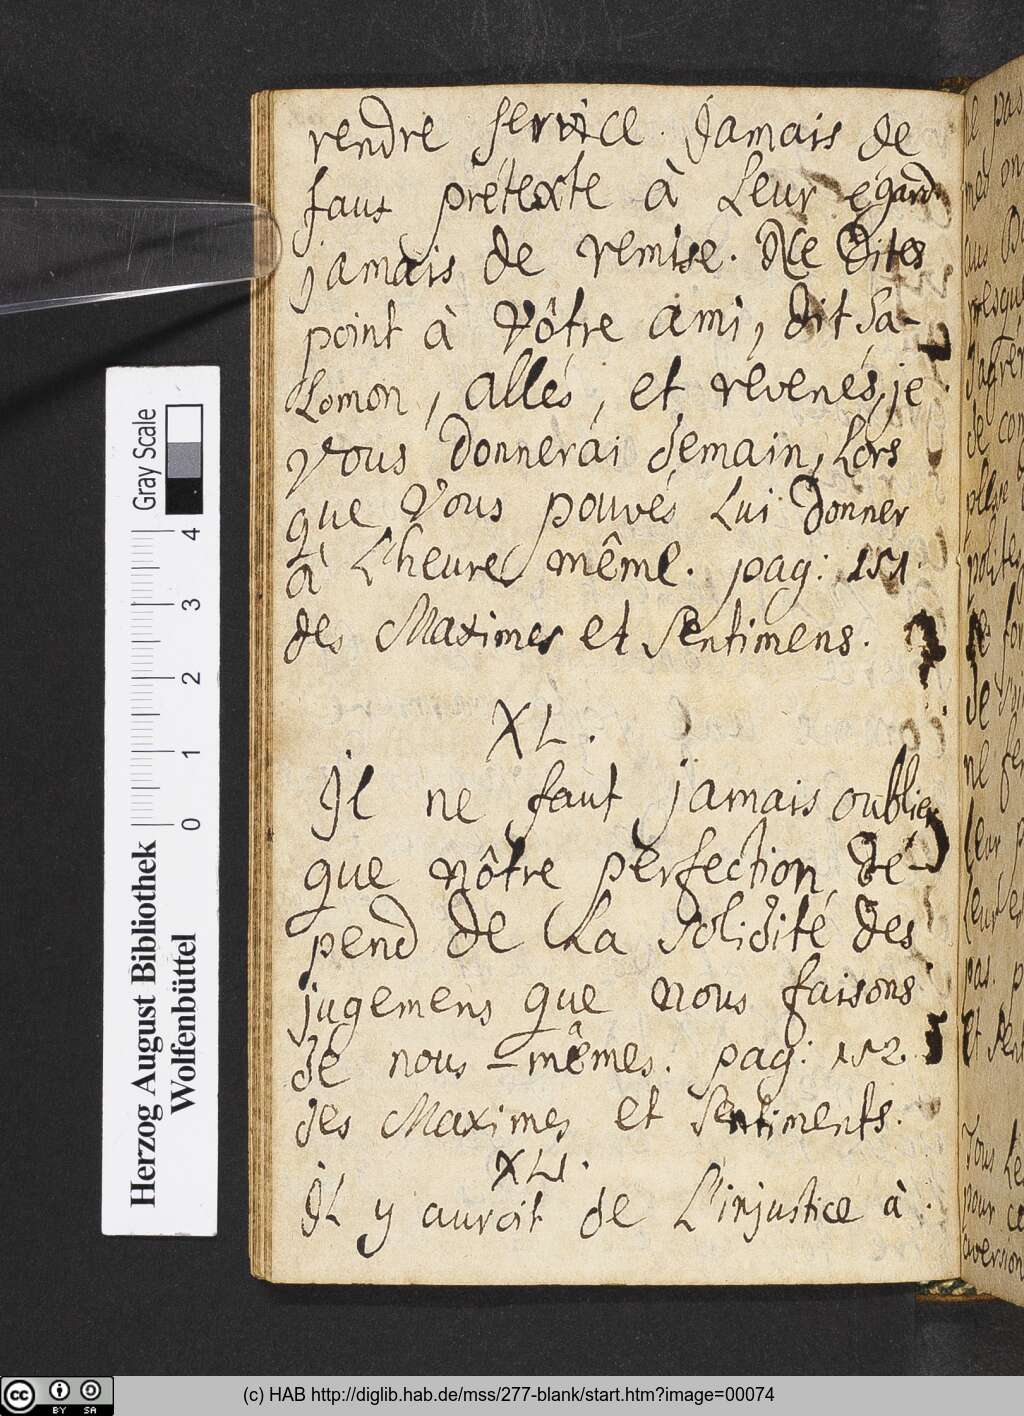 rendre service. Jamais de
faus prétexte à Leur égard.
jamais de remise. Ne Dites
point à Vôtre ami, dit Sa-
Lomon, allés, et revenés, je
Vous donnerai demain, Lors
que Vous pouvés Lui donner
à L'heure même. pag: 151.
des Maximes et Sentimens.
XL.
Il ne faut jamais oublier
que nôtre perfection dé-
pend de La Solidité des
jugemens que nous faisons
de nous-mêmes. pag: 152.
des Maximes et Sentiments.
XLI.
IL y auroit de L'injustice à
Gray Scale
4
3
2
1
0
Herzog August Bibliothek
Wolfenbüttel
cc BY SA
(c) HAB http://diglib.hab.de/mss/277-blank/start.htm?image=00074